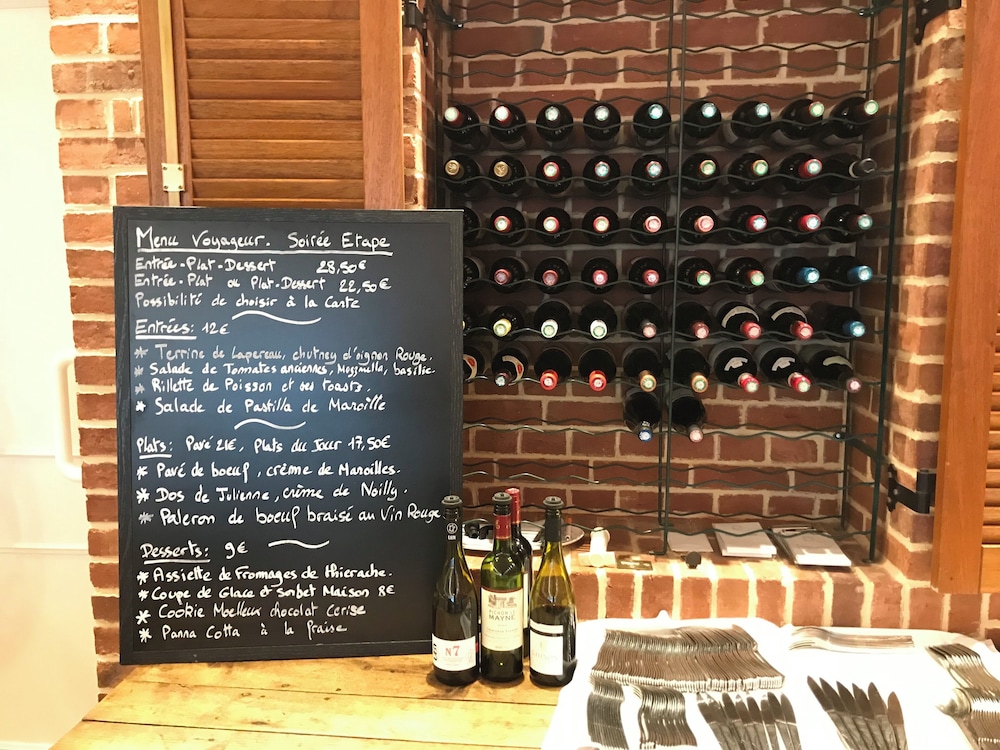 Menu Voyageur. Soirée Etape
Entrée-Plat-Dessert 28,50€
Entrée-Plat ou Plat-Dessert 22,50€
Possibilité de choisir à la Carte
Entrées: 12€
* Terrine de Lapereau, chutney d'oignon Rouge.
* Salade de Tomates anciennes, Mozzinella, basilic.
* Rillette de Poisson et ses toasts.
* Salade de Pastilla de Maroille
Plats: Pavé 21€, Plats du Jour 17,50€
* Pavé de boeuf, crème de Maroilles.
* Dos de Julienne, crème de Noilly.
* Paleron de boeuf braisé au Vin Rouge
Desserts: 9€
* Assiette de Fromages de thierache.
* Coupe de Glace et Sorbet Maison 8€
* Cookie Moelleux chocolat Cerise
* Panna Cotta à la fraise
N°7
MAYNE